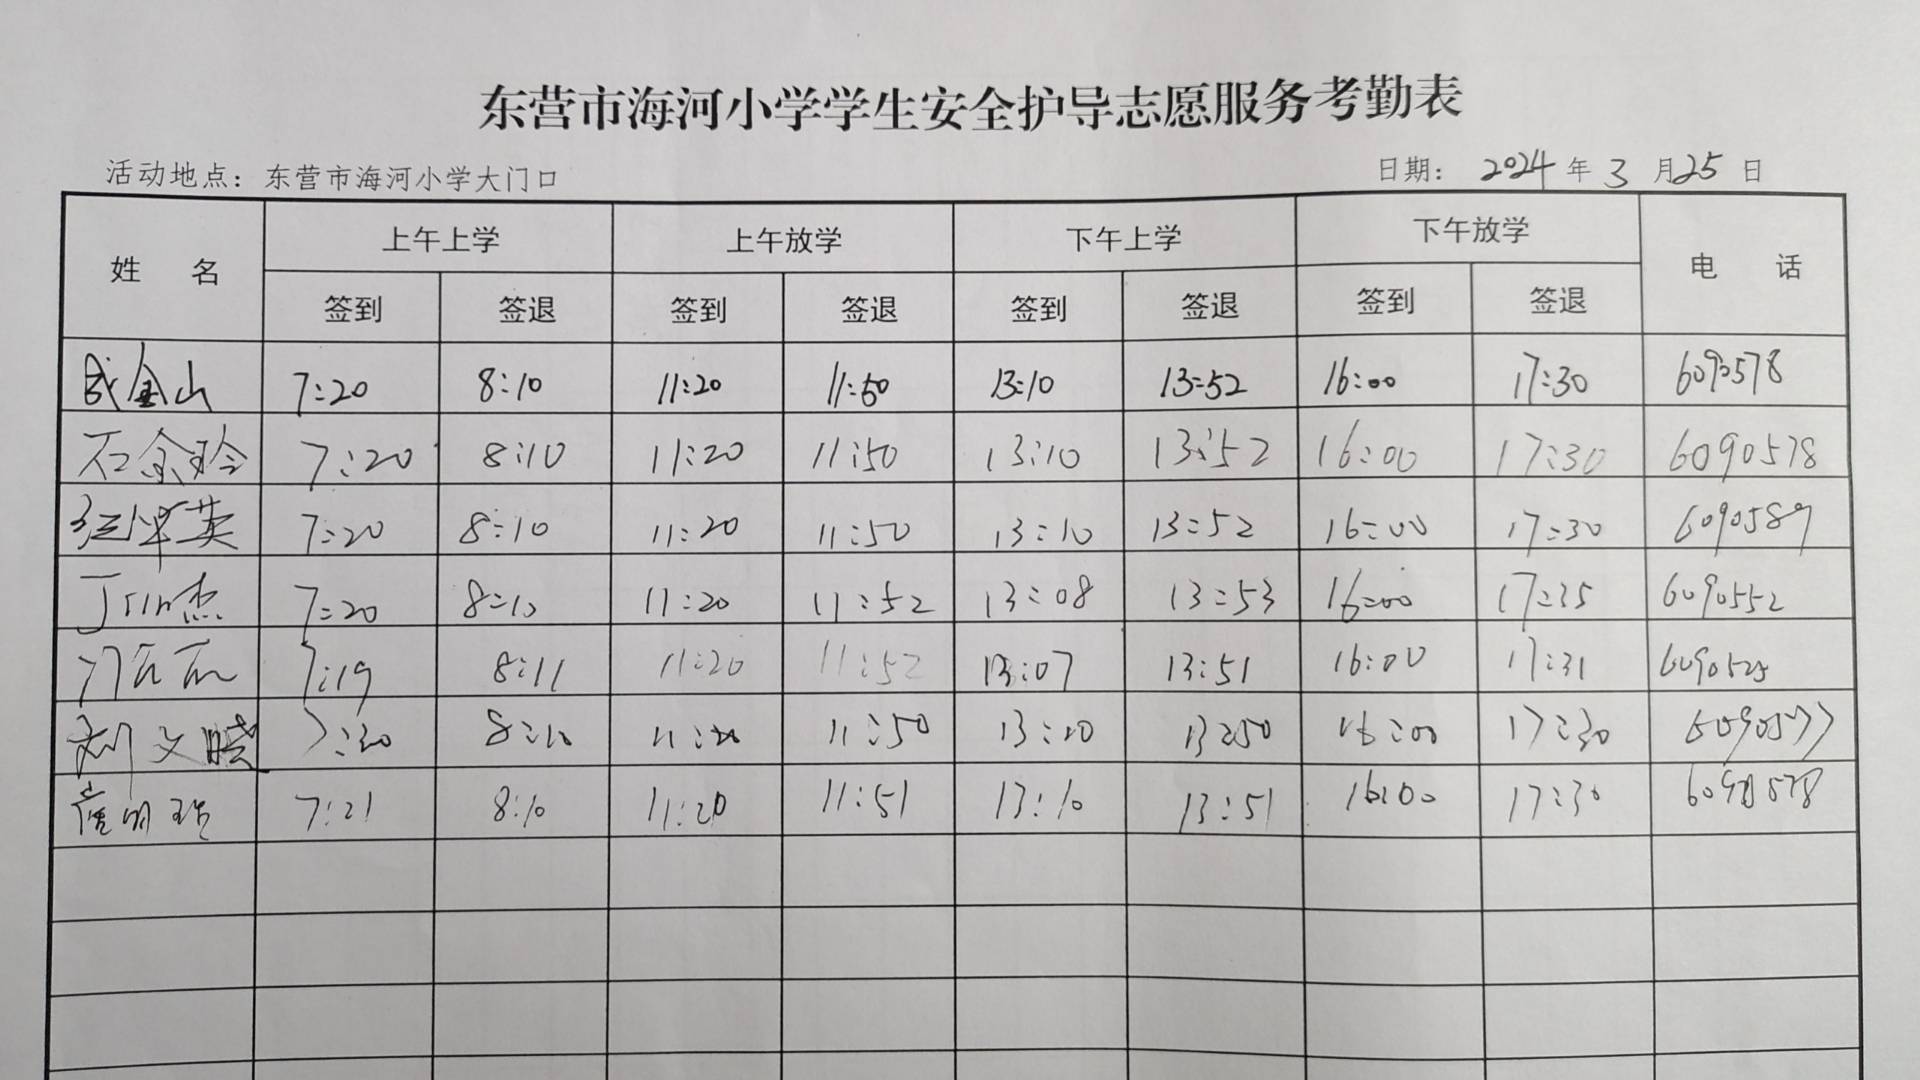 东营市海河小学学生安全护导志愿服务考勤表
活动地点：东营市海河小学大门口 日期： 2024 年 3 月 25 日
姓 名 上午上学 上午放学 下午上学 下午放学 电 话
签到 签退 签到 签退 签到 签退 签到 签退
金山 7:20 8:10 11:20 11:50 13:10 13:52 16:00 17:30 6090578
石 7:20 8:10 11:20 11:50 13:10 13:52 16:00 17:30 6090578
英 7:20 8:10 11:20 11:50 13:10 13:52 16:00 17:30 6090589
丁 杰 7:20 8:10 11:20 11:52 13:08 13:53 16:00 17:35 6090552
7:19 8:11 11:20 11:52 13:07 13:51 16:00 17:31
刘文晓 8:10 11:20 11:50 13:10 13:50 16:00 17:30 6090577
明 7:21 8:10 11:20 11:51 13:10 13:51 16:00 17:30 6090578